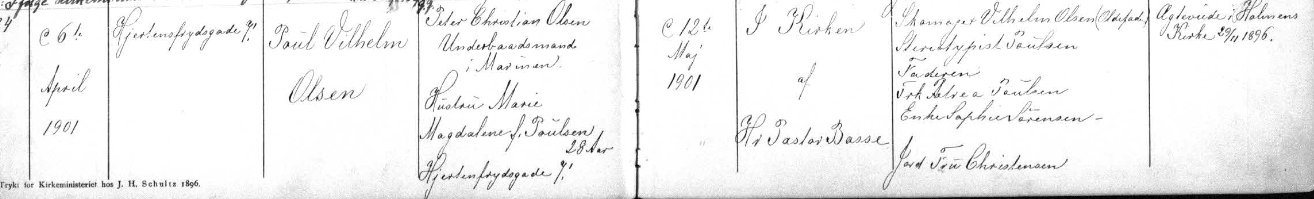 d. 6te
April
1901
Hjertensfrydsgade 7,1
Poul Vilhelm
Olsen
Peter Christian Olsen
Underbaadsmand
i Marinen.
Hustru Marie
Magdalene f. Poulsen
28 Aar
Hjertensfrydsgade 7,1
d. 12te
Maj
1901
I Kirken
af
Hr Pastor Basse
Skomager Vilhelm Olsen
Stereotypist Poulsen
Faderen
Frk Poulsen
Enke Sophie Sørensen
Jord Fru Christensen
Ægteviede i Holmens
Kirke 29/11 1896.
Trykt for Kirkeministeriet hos J. H. Schultz 1896.